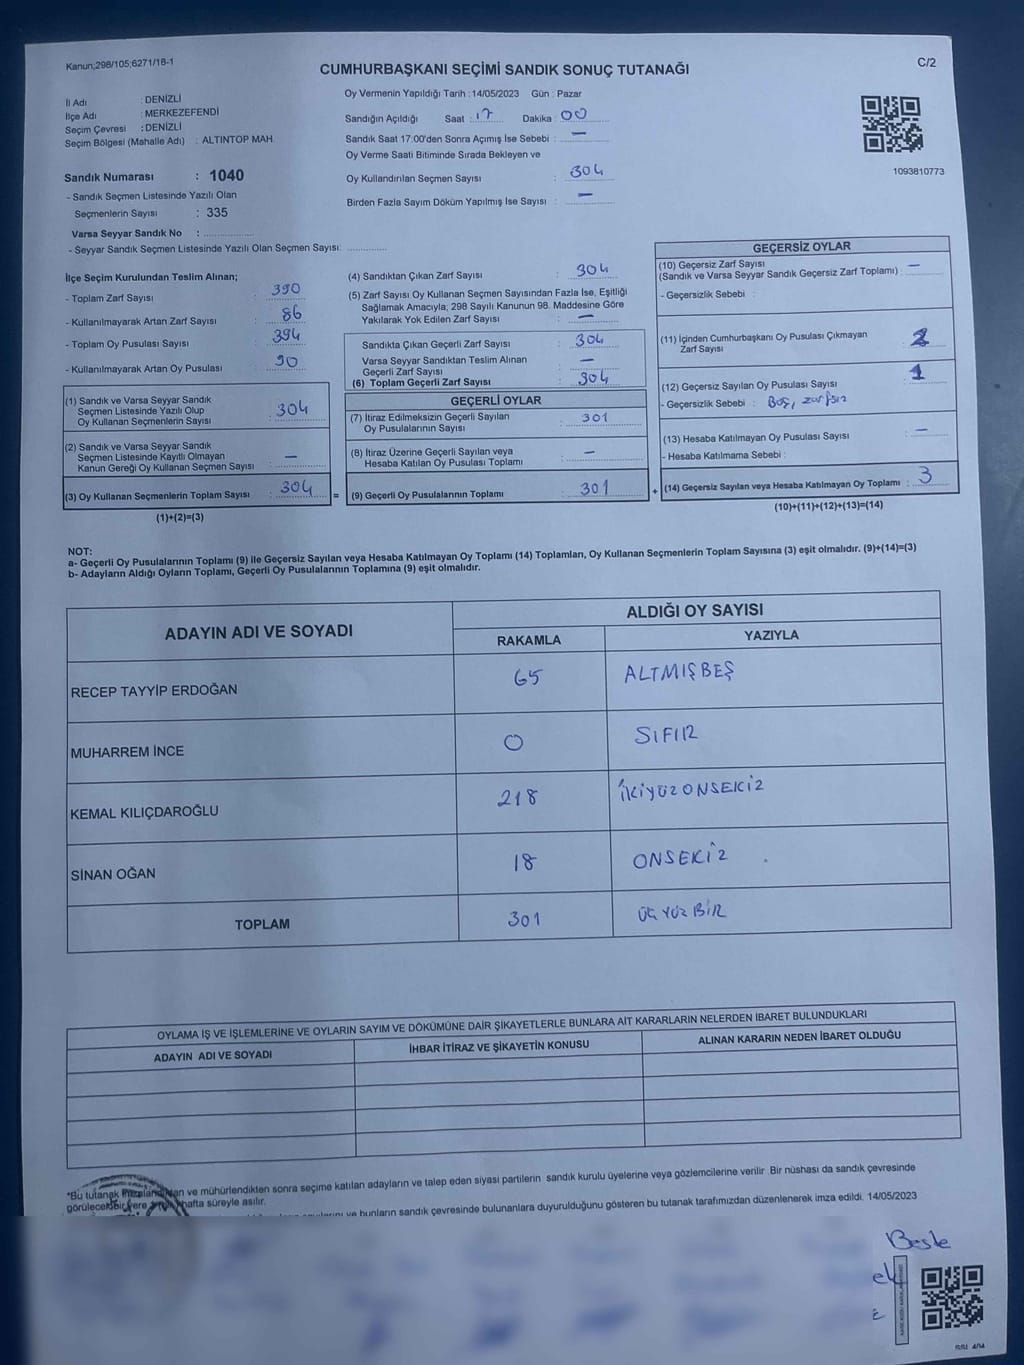 Kanun;298/105;6271/18-1
C/2
CUMHURBAŞKANI SEÇİMİ SANDIK SONUÇ TUTANAĞI
İl Adı : DENİZLİ
İlçe Adı : MERKEZEFENDİ
Seçim Çevresi : DENİZLİ
Seçim Bölgesi (Mahalle Adı) : ALTINTOP MAH.
Sandık Numarası : 1040
- Sandık Seçmen Listesinde Yazılı Olan
Seçmenlerin Sayısı : 335
Varsa Seyyar Sandık No :
- Seyyar Sandık Seçmen Listesinde Yazılı Olan Seçmen Sayısı:
Oy Vermenin Yapıldığı Tarih : 14/05/2023 Gün : Pazar
Sandığın Açıldığı Saat : 17 Dakika : 00
Sandık Saat 17.00'den Sonra Açımış İse Sebebi : —
Oy Verme Saati Bitiminde Sırada Bekleyen ve
Oy Kullandırılan Seçmen Sayısı : 304
Birden Fazla Sayım Döküm Yapılmış İse Sayısı : —
1093810773
İlçe Seçim Kurulundan Teslim Alınan;
- Toplam Zarf Sayısı : 390
- Kullanılmayarak Artan Zarf Sayısı : 86
- Toplam Oy Pusulası Sayısı : 394
- Kullanılmayarak Artan Oy Pusulası : 90
(1) Sandık ve Varsa Seyyar Sandık
Seçmen Listesinde Yazılı Olup
Oy Kullanan Seçmenlerin Sayısı : 304
(2) Sandık ve Varsa Seyyar Sandık
Seçmen Listesinde Kayıtlı Olmayan
Kanun Gereği Oy Kullanan Seçmen Sayısı : —
(3) Oy Kullanan Seçmenlerin Toplam Sayısı : 304
(1)+(2)=(3)
(4) Sandıktan Çıkan Zarf Sayısı : 304
(5) Zarf Sayısı Oy Kullanan Seçmen Sayısından Fazla İse, Eşitliği
Sağlamak Amacıyla; 298 Sayılı Kanunun 98. Maddesine Göre
Yakılarak Yok Edilen Zarf Sayısı : —
Sandıkta Çıkan Geçerli Zarf Sayısı : 304
Varsa Seyyar Sandıktan Teslim Alınan
Geçerli Zarf Sayısı : —
(6) Toplam Geçerli Zarf Sayısı : 304
GEÇERLİ OYLAR
(7) İtiraz Edilmeksizin Geçerli Sayılan
Oy Pusulalarının Sayısı : 301
(8) İtiraz Üzerine Geçerli Sayılan veya
Hesaba Katılan Oy Pusulası Toplamı : —
= (9) Geçerli Oy Pusulalarının Toplamı : 301
GEÇERSİZ OYLAR
(10) Geçersiz Zarf Sayısı
(Sandık ve Varsa Seyyar Sandık Geçersiz Zarf Toplamı) : —
- Geçersizlik Sebebi :
(11) İçinden Cumhurbaşkanı Oy Pusulası Çıkmayan
Zarf Sayısı : 2
(12) Geçersiz Sayılan Oy Pusulası Sayısı : 1
- Geçersizlik Sebebi : Boş, zarfsız
(13) Hesaba Katılmayan Oy Pusulası Sayısı : —
- Hesaba Katılmama Sebebi :
+ (14) Geçersiz Sayılan veya Hesaba Katılmayan Oy Toplamı : 3
(10)+(11)+(12)+(13)=(14)
NOT:
a- Geçerli Oy Pusulalarının Toplamı (9) ile Geçersiz Sayılan veya Hesaba Katılmayan Oy Toplamı (14) Toplamları, Oy Kullanan Seçmenlerin Toplam Sayısına (3) eşit olmalıdır. (9)+(14)=(3)
b- Adayların Aldığı Oyların Toplamı, Geçerli Oy Pusulalarının Toplamına (9) eşit olmalıdır.
ADAYIN ADI VE SOYADI
ALDIĞI OY SAYISI
RAKAMLA YAZIYLA
RECEP TAYYİP ERDOĞAN 65 ALTMIŞBEŞ
MUHARREM İNCE 0 SIFIR
KEMAL KILIÇDAROĞLU 218 İKİYÜZONSEKİZ
SİNAN OĞAN 18 ONSEKİZ
TOPLAM 301 ÜÇYÜZBİR
OYLAMA İŞ VE İŞLEMLERİNE VE OYLARIN SAYIM VE DÖKÜMÜNE DAİR ŞİKAYETLERLE BUNLARA AİT KARARLARIN NELERDEN İBARET BULUNDUKLARI
ADAYIN ADI VE SOYADI İHBAR İTİRAZ VE ŞİKAYETİN KONUSU ALINAN KARARIN NEDEN İBARET OLDUĞU
*Bu tutanak imzalandıktan ve mühürlendikten sonra seçime katılan adayların ve talep eden siyasi partilerin sandık kurulu üyelerine veya gözlemcilerine verilir. Bir nüshası da sandık çevresinde
görülecek bir yere hafta süreyle asılır.
ve bunların sandık çevresinde bulunanlara duyurulduğunu gösteren bu tutanak tarafımızdan düzenlenerek imza edildi. 14/05/2023
Beste